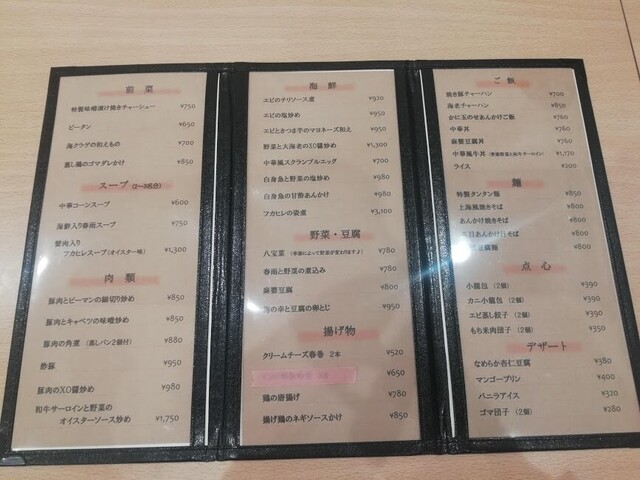 前菜
特製味噌漬け焼きチャーシュー ¥750
ピータン ¥650
海クラゲの和えもの ¥700
蒸し鶏のゴマダレかけ ¥850
スープ (2~3名分)
中華コーンスープ ¥600
海鮮入り春雨スープ ¥750
蟹肉入り
フカヒレスープ(オイスター味) ¥1,300
肉類
豚肉とピーマンの細切り炒め ¥850
豚肉とキャベツの味噌炒め ¥850
豚肉の角煮 (蒸しパン2個付) ¥880
酢豚 ¥950
豚肉のXO醤炒め ¥980
和牛サーロインと野菜の
オイスターソース炒め ¥1,750
海鮮
エビのチリソース煮 ¥920
エビの塩炒め ¥950
エビとさつま芋のマヨネーズ和え ¥950
野菜と大海老のXO醤炒め ¥1,300
中華風スクランブルエッグ ¥780
白身魚と野菜の塩炒め ¥980
白身魚の甘酢あんかけ ¥980
フカヒレの姿煮 ¥3,100
野菜・豆腐
八宝菜 (季節によって野菜が変わります♪) ¥780
春雨と野菜の煮込み ¥780
麻婆豆腐 ¥800
海の幸と豆腐の卵とじ ¥950
揚げ物
クリームチーズ春巻 2本 ¥520
¥650
鶏の唐揚げ ¥780
揚げ鶏のネギソースかけ ¥850
ご飯
焼き豚チャーハン ¥700
海老チャーハン ¥850
かに玉のせあんかけご飯 ¥760
中華丼 ¥760
麻婆豆腐丼 ¥760
中華風牛丼 ¥1,170
ライス ¥200
麺
特製タンタン麺 ¥850
上海風焼きそば ¥800
あんかけ焼きそば ¥800
五目あんかけ汁そば ¥800
豆腐麺 ¥800
点心
小籠包 (2個) ¥390
カニ小籠包 (2個) ¥390
エビ蒸し餃子 (2個) ¥390
もち米肉団子 (2個) ¥350
デザート
なめらか杏仁豆腐 ¥380
マンゴープリン ¥400
バニラアイス ¥320
ゴマ団子 (2個) ¥280